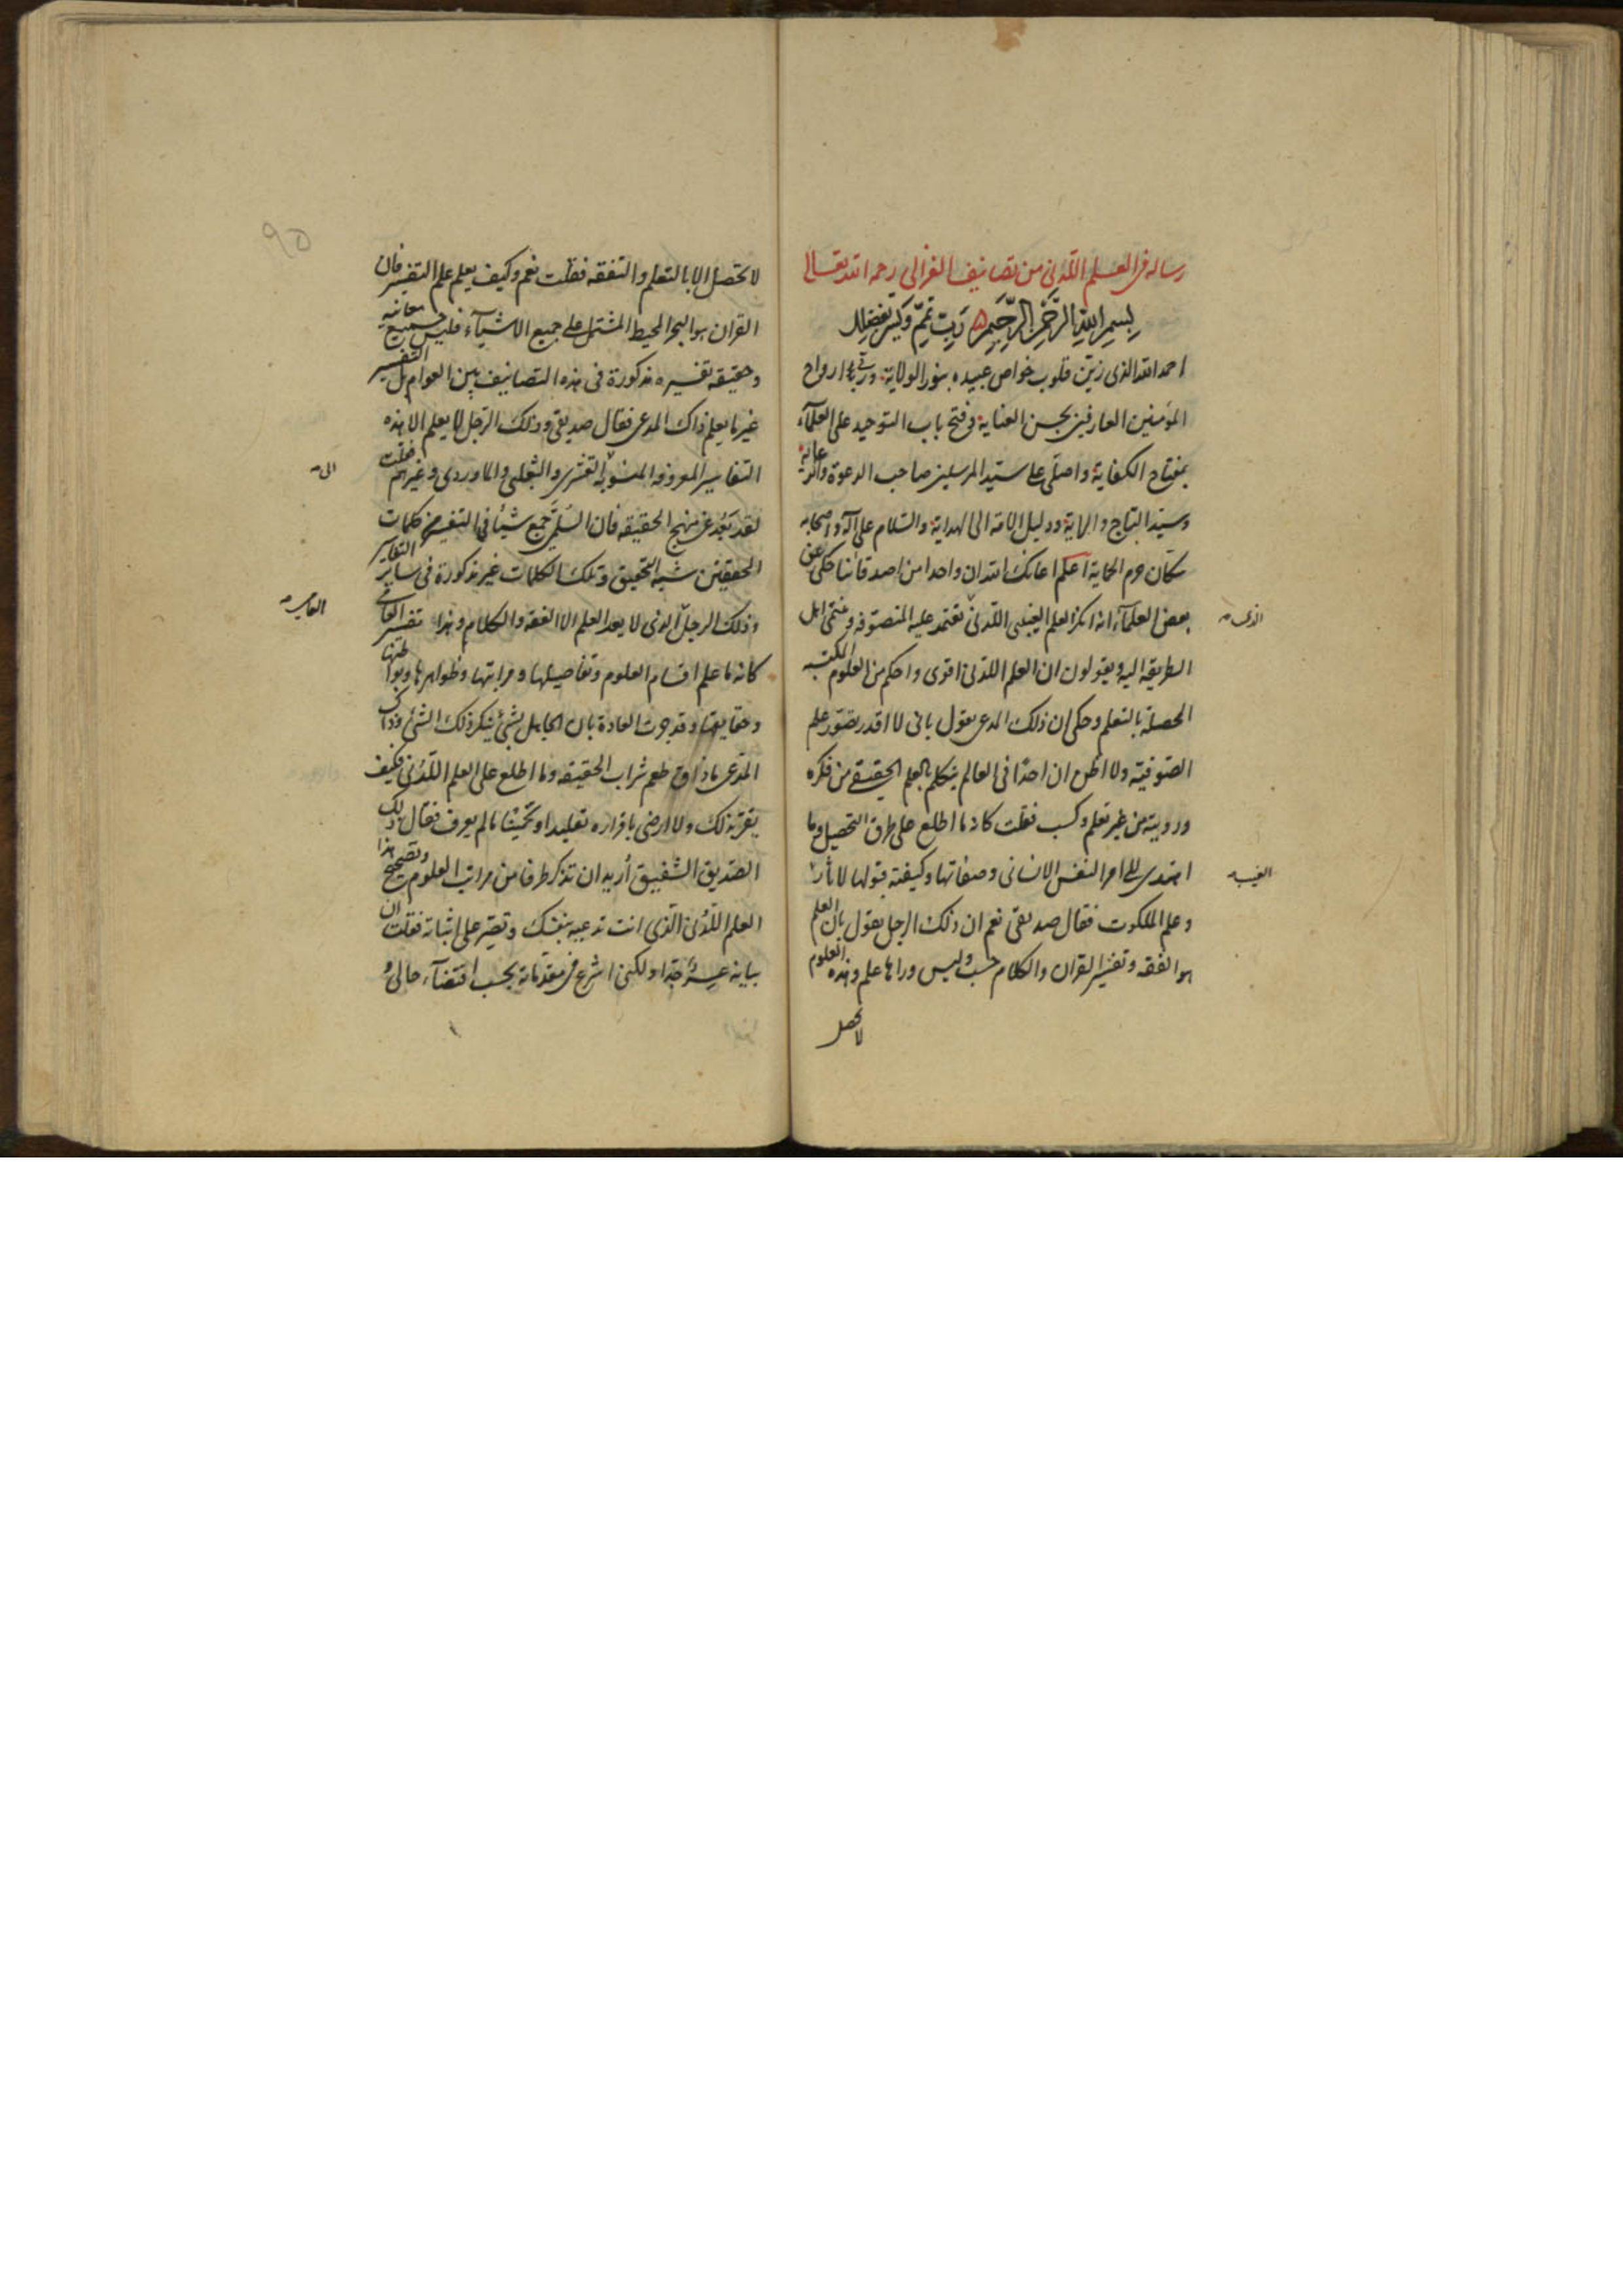 رسالة في العلم اللدني من تصانيف الغزالي رحمه الله تعالى
بسم الله الرحمن الرحيم رب تمم ويسر بفضلك
احمد الله الذي زين قلوب خواص عبيده بنور الولاية وربى ارواح
المؤمنين العارفين بحسن العناية وفتح باب التوحيد على العلماء
بمفتاح الكفاية واصلي على سيد المرسلين صاحب الدعوة والرعاية
وسيد التاج والراية ودليل الامة الى الهداية والسلام على آله واصحابه
سكان حرم الحماية اعلم اعانك الله ان واحدا من اصدقائنا حكى عن
بعض العلماء انه انكر العلم الغيبي اللدني تعتمد عليه المتصوفة وينتمي اهل
الذي
الطريقة اليه ويقولون ان العلم اللدني اقوى واحكم من العلوم المكتسبة
المحصلة بالتعلم وحكى ان ذلك المدعي يقول باني لا اقدر بتصور علم
الصوفية ولا اظن ان احدا في العالم يتكلم بالعلم الحقيقي من فكره
وروية من غير تعلم وكسب فقلت كانه ما اطلع على طرق التحصيل وما
اهتدى الى امر النفس الانساني وصفاتها وكيفية قبولها لاثار
الغيب
وعلم الملكوت فقال صديقي نعم ان ذلك الرجل يقول بان العلم
هو الفقه وتفسير القران والكلام حسب وليس وراها علم وهذه العلوم
لا تحصل
٩٥
لا تحصل الا بالتعلم والتفقه فقلت نعم وكيف يعلم علم التفسير فان
القران هو البحر المحيط المشتمل على جميع الاشياء فليس جميع معانيه
وحقيقة تفسيره مذكورة في هذه التصانيف بين العوام بل التفسير
غير ما يعلم ذاك المدعي فقال صديقي وذلك الرجل لا يعلم الا هذه
التفاسير المعروفة المنسوبة القشيري والثعلبي والماوردي وغيرهم فقلت
الى
لقد بعد عن منهج الحقيقة فان السلمي جمع شيئا في التفسير من كلمات
المحققين شبه التحقيق وتلك الكلمات غير مذكورة في سائر التفاسير
وذلك الرجل الذي لا يعد العلم الا الفقه والكلام وهذا تفسير العامي
كانه ما علم اقسام العلوم وتفاصيلها ومراتبها وظواهرها وبواطنها
وحقايقها وقد جرت العادة بان الجاهل بشئ ينكر ذلك الشئ وذاك
المدعي ما ذاق طعم شراب الحقيقة وما اطلع على العلم اللدني فكيف
يقر بذلك ولا ارضى باقراره تقليدا او تخمينا ما لم يعرف فقال ذلك
الصديق الشفيق اريد ان تذكر طرفا من مراتب العلوم وتصحح هذا
العلم اللدني الذي انت تدعيه بنفسك وتقر على اثباته فقلت ان
بيانه عسر جدا ولكني اشرع في مقدماته بحسب اقتضاء حالي و